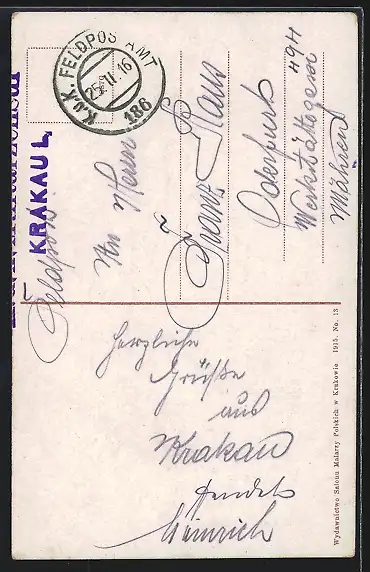 K.u.K. FELDPOSTAMT
25.II.16
186
KRAKAU I.
Feldpost
An Herrn
Franz
Oderfurt
Werkstättegasse
Mähren
Herzliche
Grüße
aus
Krakau
Heinrich
Wydawnictwo Salonu Malarzy Polskich w Krakowie 1915. No. 13